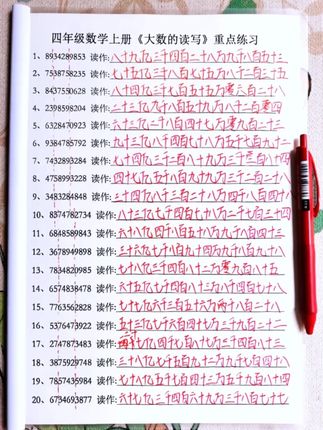 四年级数学上册《大数的读写》重点练习
1、8934289853 读作: 八十九亿三千四百二十八万九千八百五十三
2、7538758235 读作: 七十五亿三千八百七十五万八千二百三十五
3、8437550628 读作: 八十四亿三千七百五十五万零六百二十八
4、2398598204 读作: 二十三亿九千八百五十九万八千二百零四
5、6328470923 读作: 六十三亿二千八百四十七万零九百二十三
6、9384785792 读作: 九十三亿八千四百七十八万五千七百九十二
7、7432893284 读作: 七十四亿三千二百八十九万三千二百八十四
8、4758993228 读作: 四十七亿五千八百九十九万三千二百二十八
9、3483284848 读作: 三十四亿八千三百二十八万四千八百四十八
10、8374782734 读作: 八十三亿七千四百七十八万二千七百三十四
11、6848589843 读作: 六十八亿四千八百五十八万九千八百四十三
12、3678949898 读作: 三十六亿七千八百九十四万九千八百九十八
13、7834820985 读作: 七十八亿三千四百八十二万零九百八十五
14、6574838478 读作: 六十五亿七千四百八十三万八千四百七十八
15、7763562828 读作: 七十七亿六千三百五十六万两千八百二十八
16、5376473922 读作: 五十三亿七千六百四十七万三千九百二十二
17、2747873483 读作: 二十七亿四千七百八十七万三千四百八十三
18、3875929748 读作: 三十八亿七千五百九十二万九千七百四十八
19、7857435984 读作: 七十八亿五千七百四十三万五千九百八十四
20、6734693877 读作: 六十七亿三千四百六十九万三千八百七十七